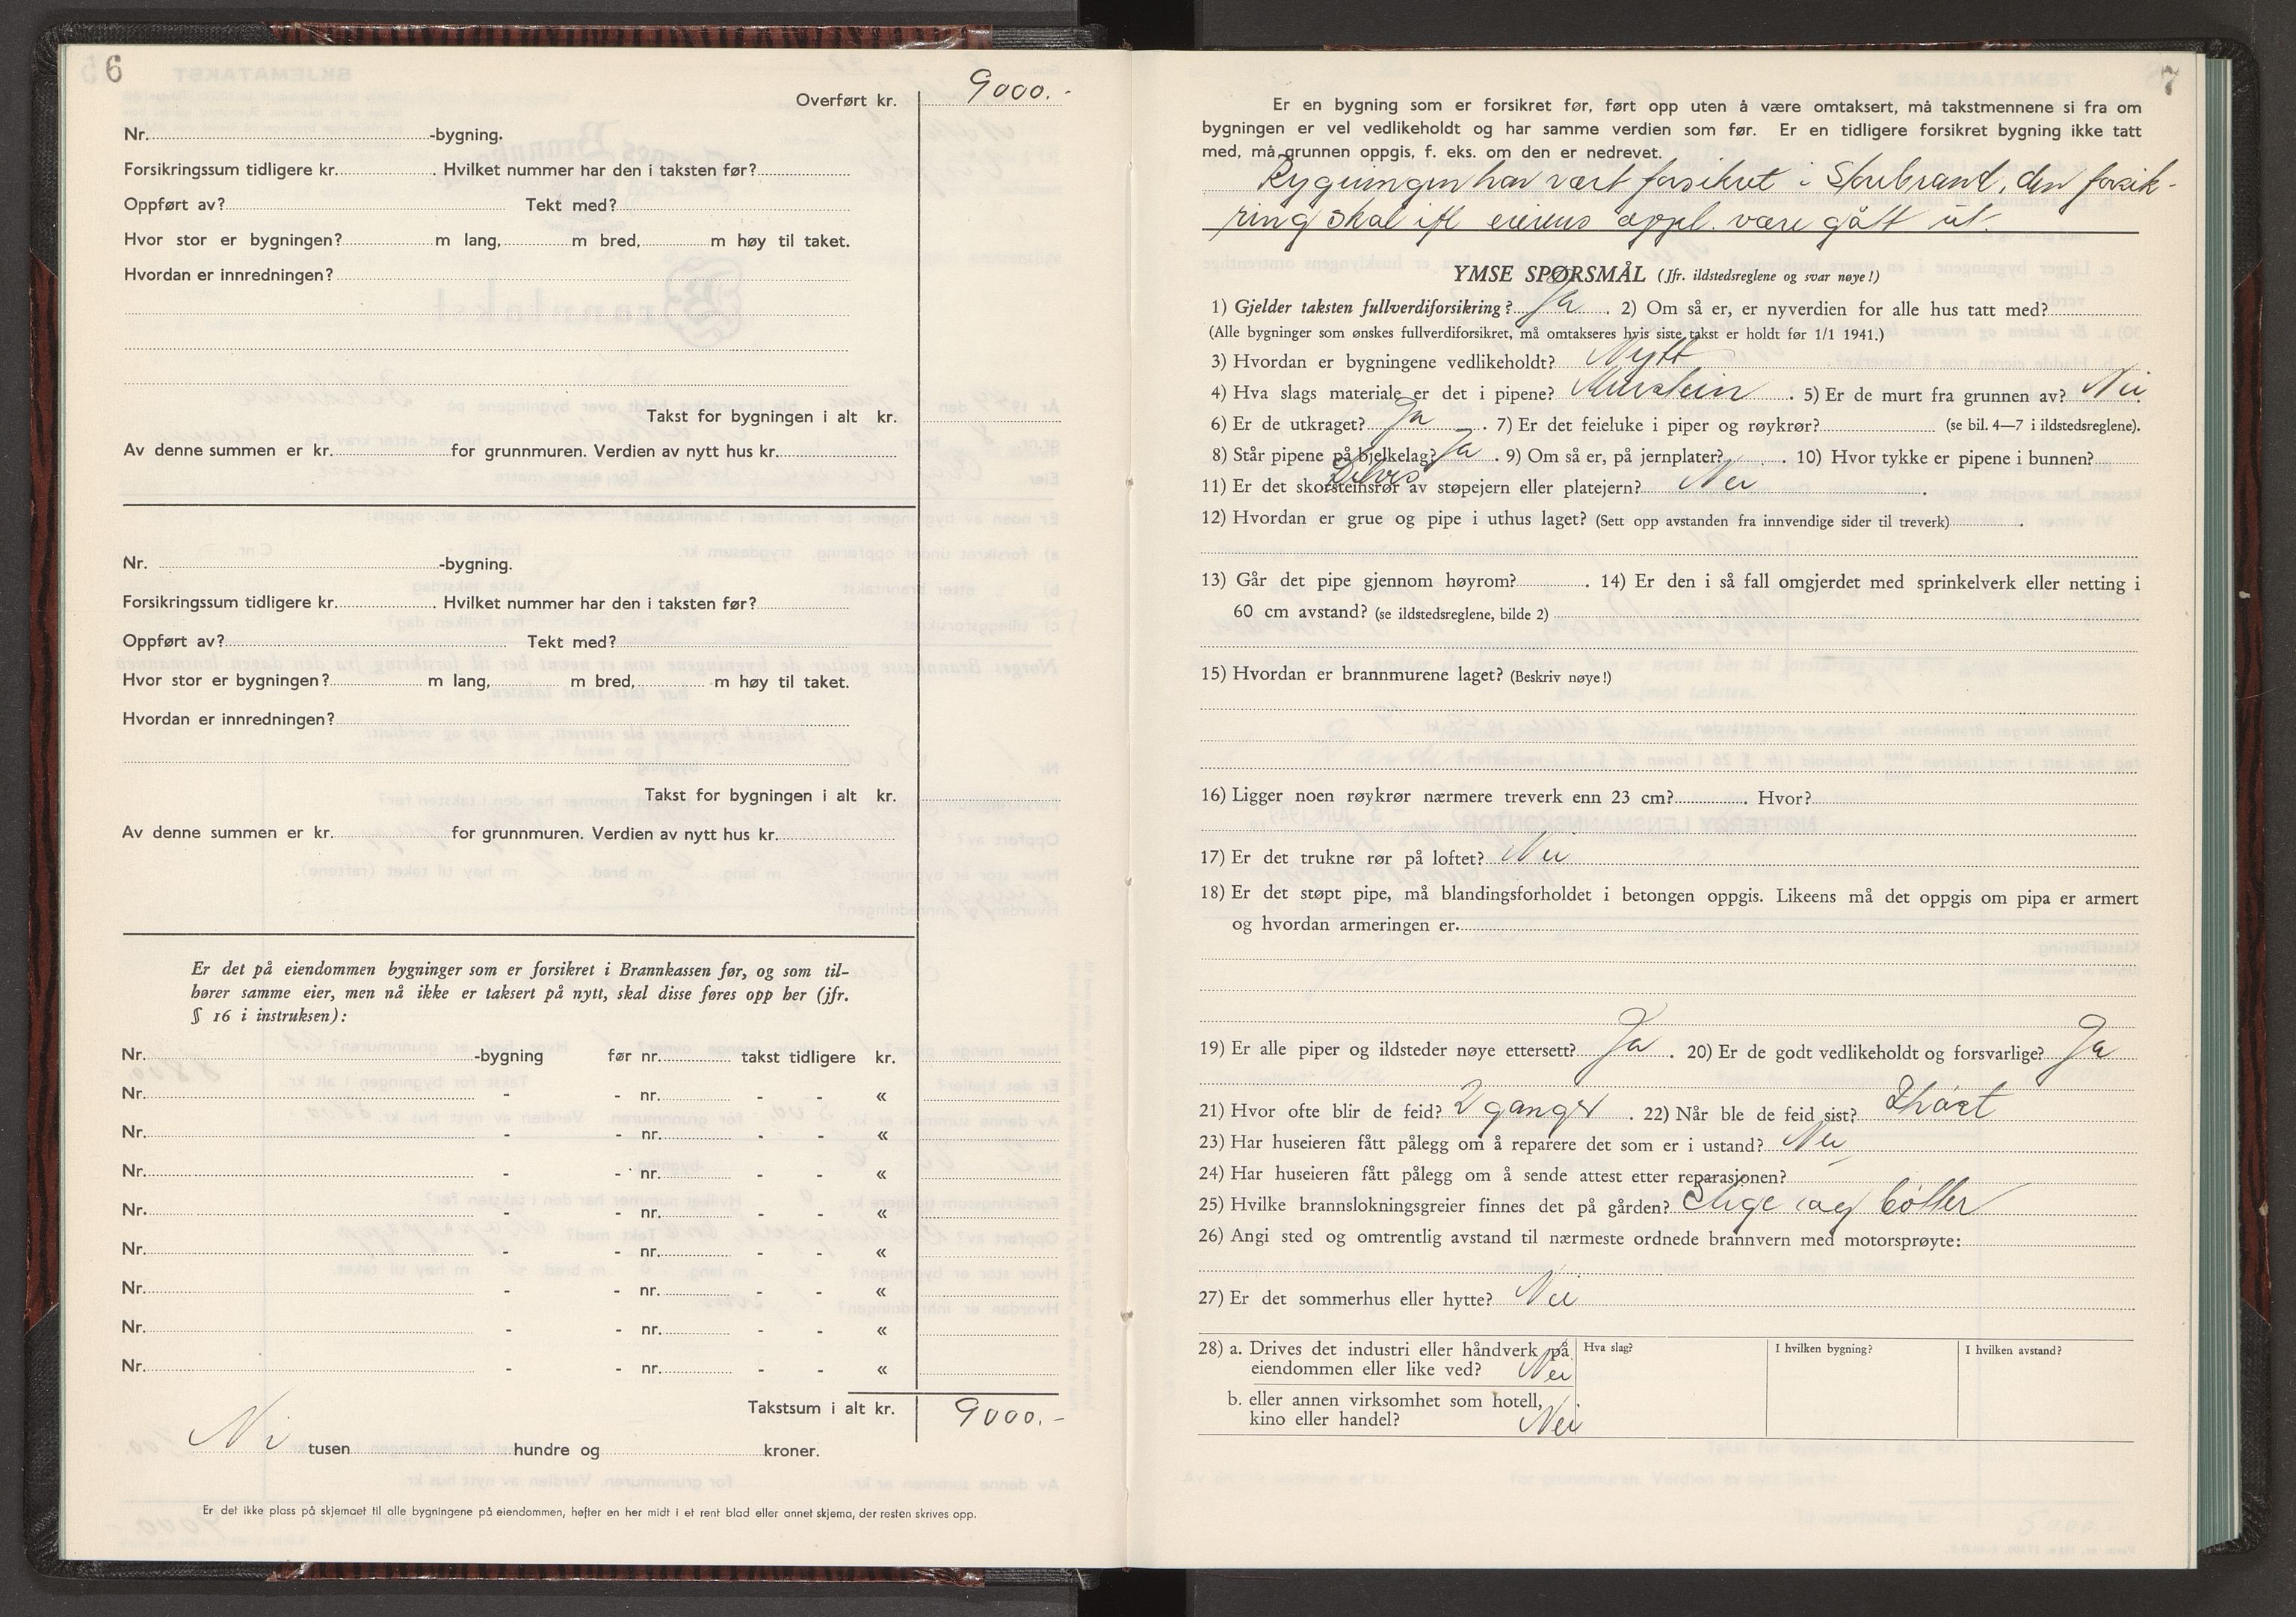 6
Overført kr. 9000.-
Nr. -bygning.
Forsikringssum tidligere kr. . Hvilket nummer har den i taksten før?
Oppført av? Tekt med?
Hvor stor er bygningen? m lang, m bred, m høy til taket.
Hvordan er innredningen?
Takst for bygningen i alt kr.
Av denne summen er kr. for grunnmuren. Verdien av nytt hus kr.
Nr. -bygning.
Forsikringssum tidligere kr. . Hvilket nummer har den i taksten før?
Oppført av? Tekt med?
Hvor stor er bygningen? m lang, m bred, m høy til taket.
Hvordan er innredningen?
Takst for bygningen i alt kr.
Av denne summen er kr. for grunnmuren. Verdien av nytt hus kr.
Er det på eiendommen bygninger som er forsikret i Brannkassen før, og som til-
hører samme eier, men nå ikke er taksert på nytt, skal disse føres opp her (jfr.
§ 16 i instruksen):
Nr. -bygning før nr. takst tidligere kr.
Nr. - - nr. - - «
Nr. - - nr. - - «
Nr. - - nr. - - «
Nr. - - nr. - - «
Nr. - - nr. - - «
Nr. - - nr. - - «
Nr. - - nr. - - «
Nr. - - nr. - - «
Takstsum i alt kr. 9000.-
Ni tusen hundre og kroner.
Er det ikke plass på skjemaet til alle bygningene på eiendommen, hefter en her midt i et rent blad eller annet skjema, der resten skrives opp.
7
Er en bygning som er forsikret før, ført opp uten å være omtaksert, må takstmennene si fra om
bygningen er vel vedlikeholdt og har samme verdien som før. Er en tidligere forsikret bygning ikke tatt
med, må grunnen oppgis, f. eks. om den er nedrevet.
Bygningen har vært forsikret i Storebrand, den forsik-
ring skal ifl eierens oppl. være gått ut.
YMSE SPØRSMÅL (Jfr. ildstedsreglene og svar nøye!)
1) Gjelder taksten fullverdiforsikring? Ja . 2) Om så er, er nyverdien for alle hus tatt med?
(Alle bygninger som ønskes fullverdiforsikret, må omtakseres hvis siste takst er holdt før 1/1 1941.)
3) Hvordan er bygningene vedlikeholdt? Nytt
4) Hva slags materiale er det i pipene? Murstein . 5) Er de murt fra grunnen av? Nei
6) Er de utkraget? Ja . 7) Er det feieluke i piper og røykrør? (se bil. 4—7 i ildstedsreglene).
8) Står pipene på bjelkelag? Ja . 9) Om så er, på jernplater? . 10) Hvor tykke er pipene i bunnen?
Delvis
11) Er det skorsteinsrør av støpejern eller platejern? Nei .
12) Hvordan er grue og pipe i uthus laget? (Sett opp avstanden fra innvendige sider til treverk) .
13) Går det pipe gjennom høyrom? . 14) Er den i så fall omgjerdet med sprinkelverk eller netting i
60 cm avstand? (se ildstedsreglene, bilde 2)
15) Hvordan er brannmurene laget? (Beskriv nøye!)
16) Ligger noen røykrør nærmere treverk enn 23 cm? . Hvor?
17) Er det trukne rør på loftet? Nei
18) Er det støpt pipe, må blandingsforholdet i betongen oppgis. Likeens må det oppgis om pipa er armert
og hvordan armeringen er.
19) Er alle piper og ildsteder nøye ettersett? Ja . 20) Er de godt vedlikeholdt og forsvarlige? Ja
21) Hvor ofte blir de feid? 2 ganger . 22) Når ble de feid sist? I høst
23) Har huseieren fått pålegg om å reparere det som er i ustand? Nei
24) Har huseieren fått pålegg om å sende attest etter reparasjonen?
25) Hvilke brannslokningsgreier finnes det på gården? Stige og bøtter
26) Angi sted og omtrentlig avstand til nærmeste ordnede brannvern med motorsprøyte:
27) Er det sommerhus eller hytte? Nei
28) a. Drives det industri eller håndverk på Hva slag? I hvilken bygning? I hvilken avstand?
eiendommen eller like ved? Nei
b. eller annen virksomhet som hotell,
kino eller handel? Nei